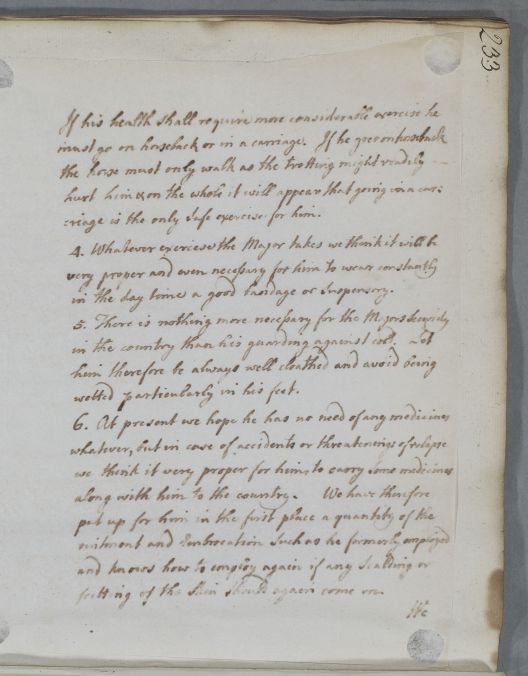 233
If his health shall require more considerable exercise he
must go on horseback or in a carriage. If he goes on horseback
the horse must only walk as the trotting might readily
hurt him & on the whole it will appear that going in a car:
:riage is the only safe exercise for him.
4. Whatever exercise the Major takes we think it will be
very proper and even necessary for him to wear constantly
in the day time a good bandage or suspensory.
5. There is nothing more necessary for the Majors Security
in the country than his guarding against cold. Let
him therefore be always well cloathed and avoid being
wetted particularly in his feet.
6. At present we hope he has no need of any medicines
whatever, but in case of accidents or threatenings of relapse
we think it very proper for him to carry some medicines
along with him to the country. We have therefore
put up for him in the first place a quantity of the
ointment and Embrocation such as he formerly employed
and knows how to employ again if any Scalding or
fretting of the Skin should again come on.
We